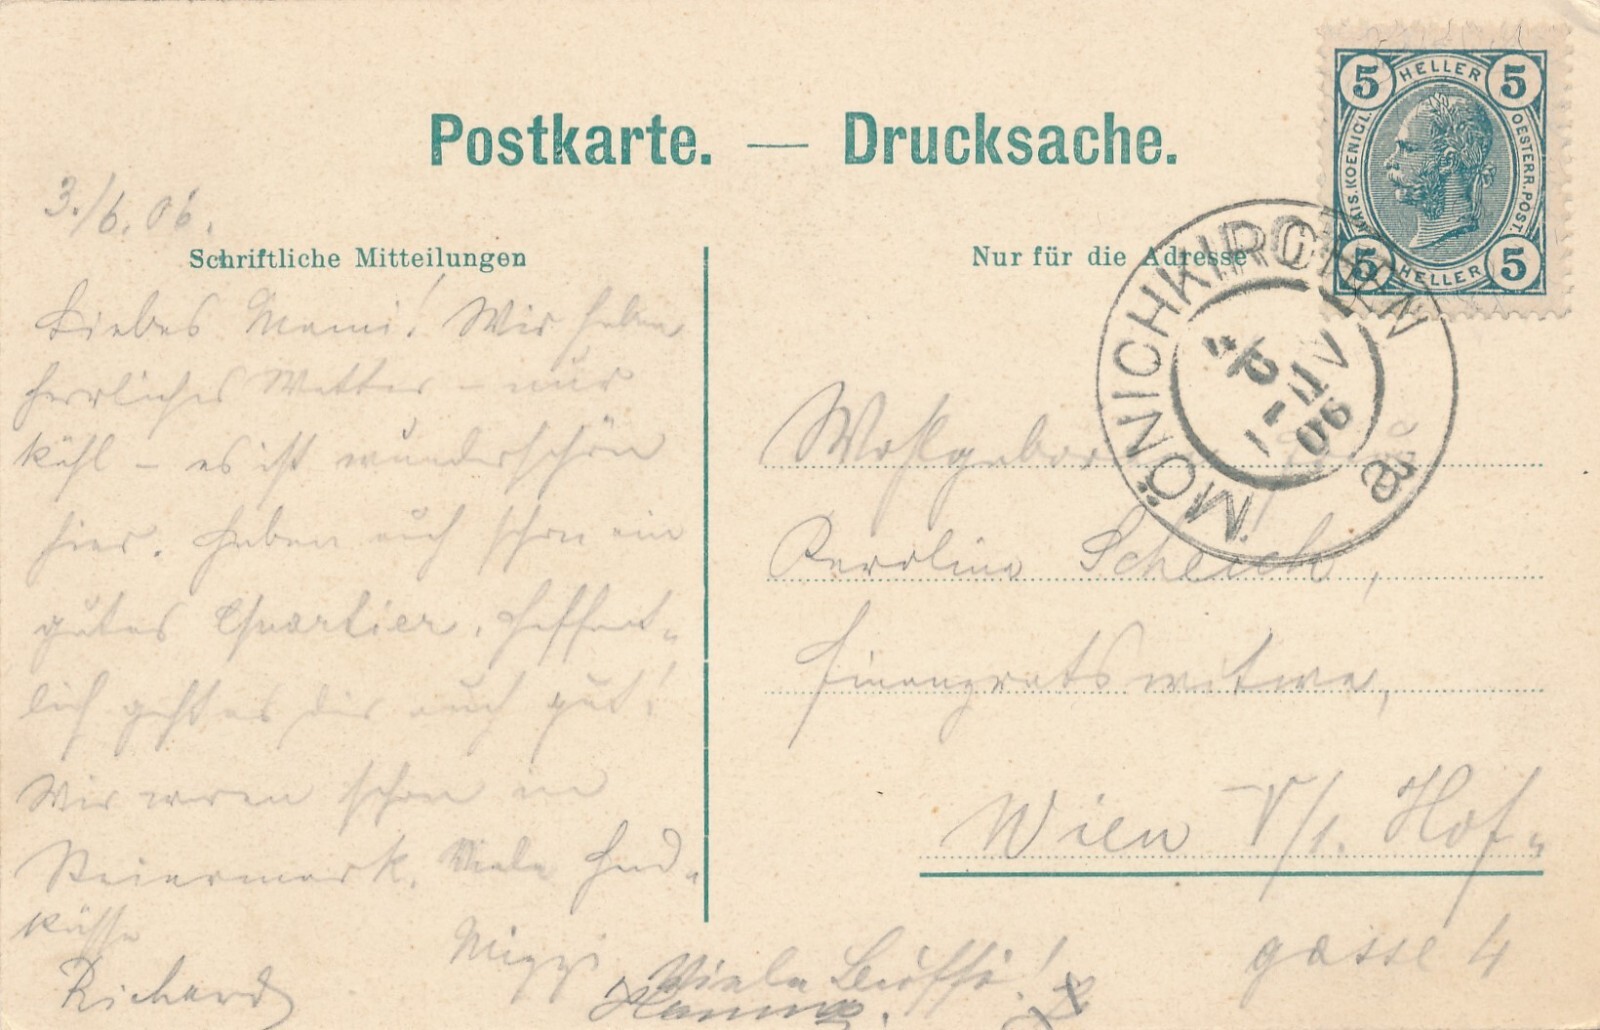 Postkarte. — Drucksache.
5 HELLER 5
KAIS. KOENIGL. OESTERR. POST.
5 HELLER 5
3./6. 06.
Schriftliche Mitteilungen
Nur für die Adresse
MÖNICHKIRCHEN
06
Liebes Mami! Wir haben
herrliches Wetter – nur
kühl – es ist wunderschön
hier. Haben auch schon ein
gutes Quartier. Hoffent-
lich geht es dir auch gut!
Wir waren schon in
Steiermark. Viele Hand-
küsse
Richard
Mizzi
Viele Bussi!
Wohlgeboren Frau
Karoline Scheich,
Finanzratswitwe,
Wien V/1. Hof-
gasse 4